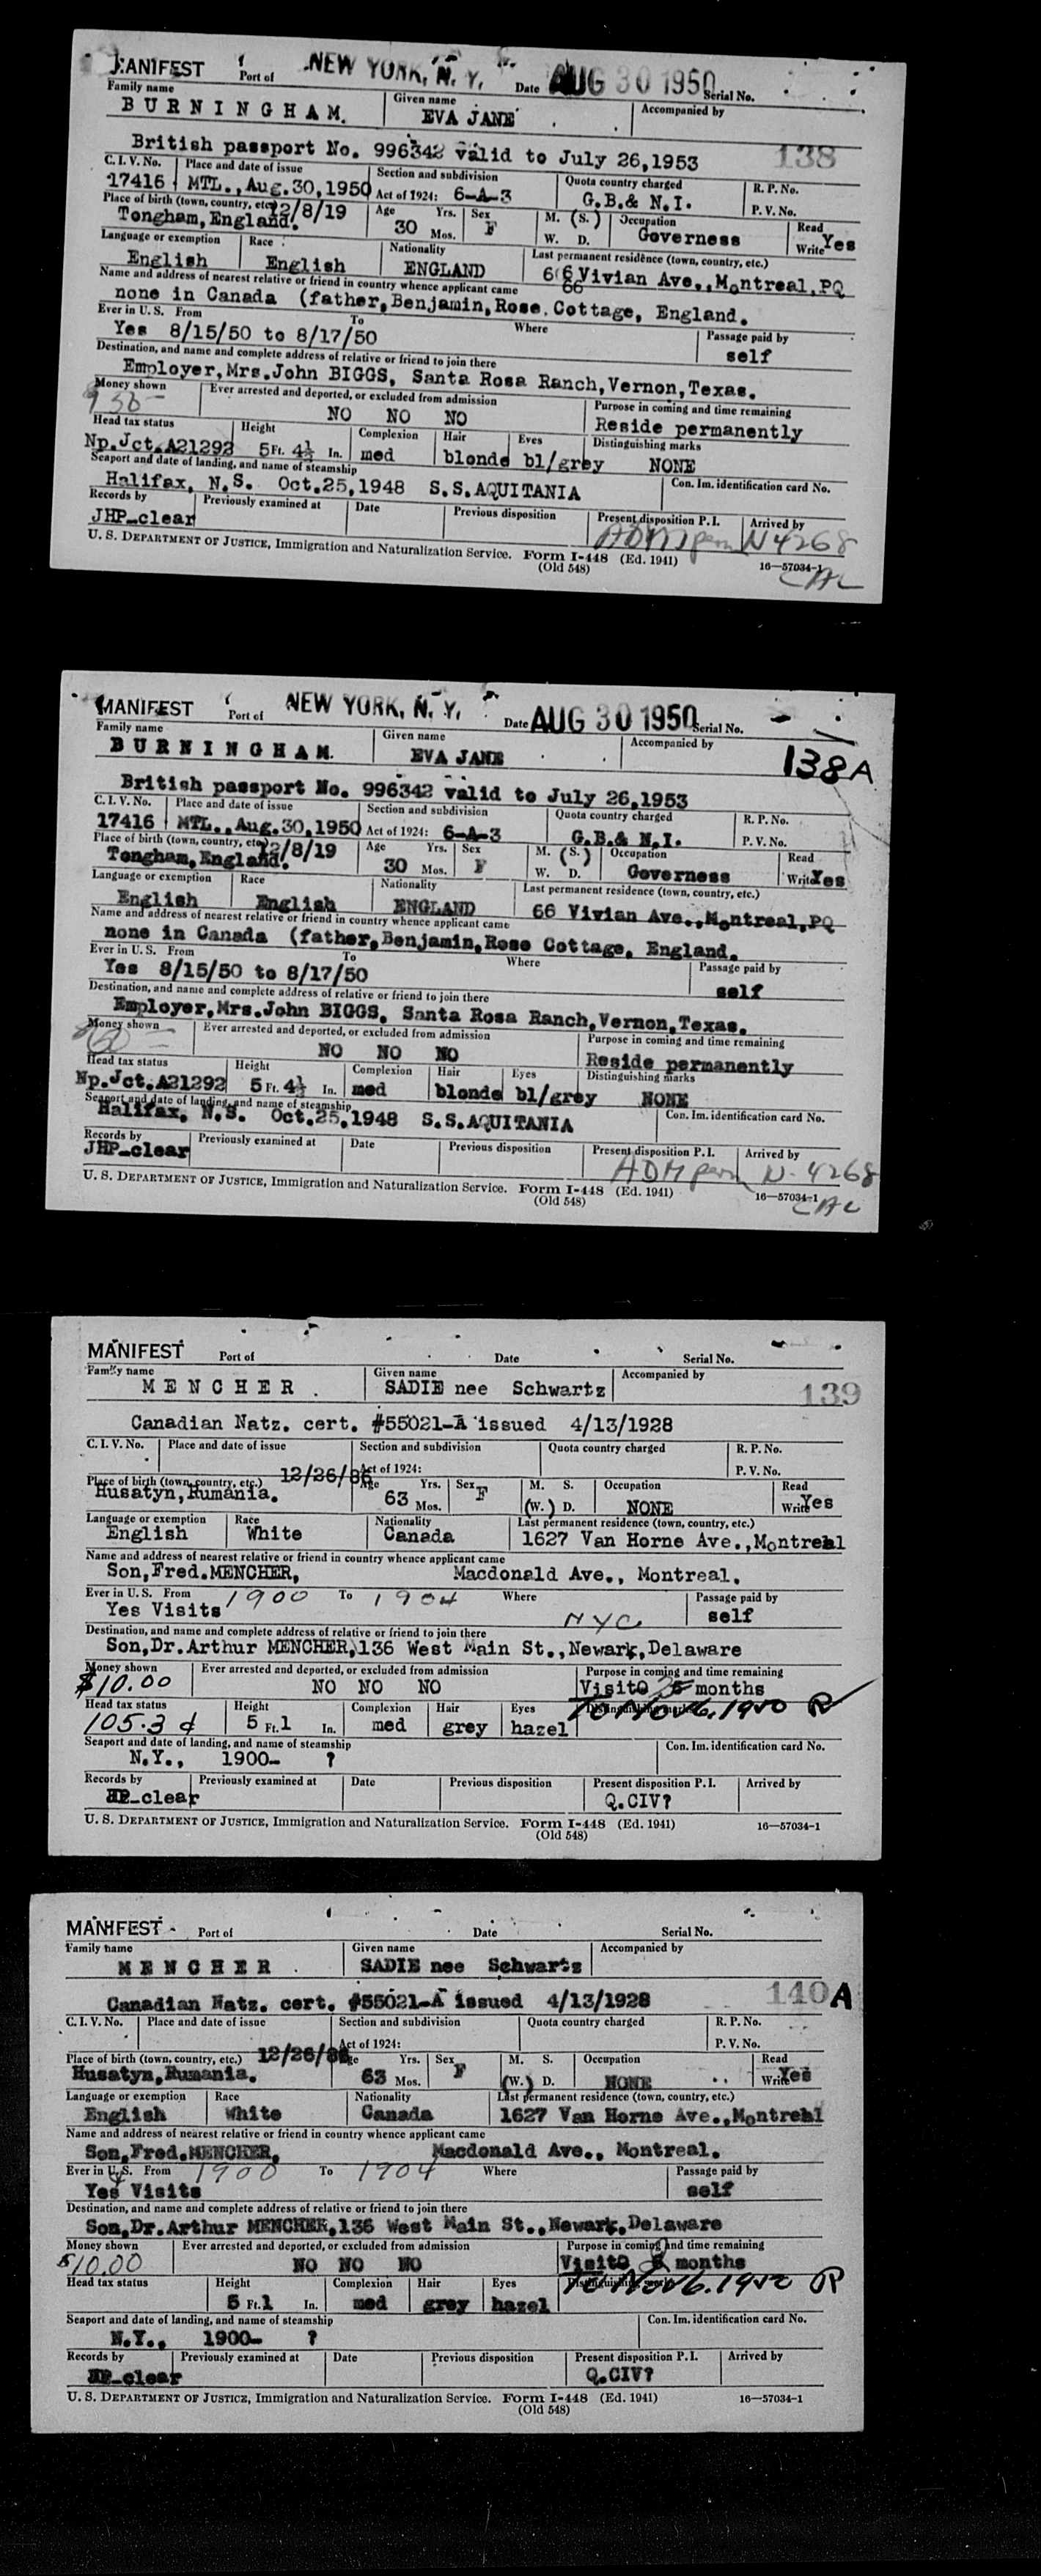 MANIFEST Port of NEW YORK, N. Y. Date AUG 30 1950 Serial No.
Family name Given name Accompanied by
BURNINGHAM. EVA JANE
British passport No. 996342 valid to July 26,1953 138
C. I. V. No. Place and date of issue Section and subdivision Quota country charged R. P. No.
17416 MTL., Aug.30,1950 Act of 1924: 6-A-3 G.B.& N.I. P. V. No.
Place of birth (town, country, etc.) 12/8/19 Age Yrs. Sex M. (S.) Occupation Read
Tongham,England. 30 Mos. F W. D. Governess Write Yes
Language or exemption Race Nationality Last permanent residence (town, country, etc.)
English English ENGLAND 66 Vivian Ave.,Montreal,PQ
66
Name and address of nearest relative or friend in country whence applicant came
none in Canada (father,Benjamin,Rose Cottage, England.
Ever in U. S. From To Where Passage paid by
Yes 8/15/50 to 8/17/50 self
Destination, and name and complete address of relative or friend to join there
Employer,Mrs.John BIGGS, Santa Rosa Ranch,Vernon,Texas.
Money shown Ever arrested and deported, or excluded from admission Purpose in coming and time remaining
NO NO NO Reside permanently
Head tax status Height Complexion Hair Eyes Distinguishing marks
Np.Jct.A21292 5 Ft. 4½ In. med blonde bl/grey NONE
Seaport and date of landing, and name of steamship Con. Im. identification card No.
Halifax, N.S. Oct.25,1948 S.S.AQUITANIA
Records by Previously examined at Date Previous disposition Present disposition P. I. Arrived by
JHP-clear ADM perm N 4268
U. S. DEPARTMENT OF JUSTICE, Immigration and Naturalization Service. Form I-448 (Ed. 1941) 16—57034-1
(Old 548) CAL
MANIFEST Port of NEW YORK, N. Y. Date AUG 30 1950 Serial No.
Family name Given name Accompanied by
BURNINGHAM. EVA JANE 138A
British passport No. 996342 valid to July 26,1953
C. I. V. No. Place and date of issue Section and subdivision Quota country charged R. P. No.
17416 MTL., Aug.30,1950 Act of 1924: 6-A-3 G.B.& N.I. P. V. No.
Place of birth (town, country, etc.) 12/8/19 Age Yrs. Sex M. (S.) Occupation Read
Tongham,England. 30 Mos. F W. D. Governess Write Yes
Language or exemption Race Nationality Last permanent residence (town, country, etc.)
English English ENGLAND 66 Vivian Ave.,Montreal,PQ
Name and address of nearest relative or friend in country whence applicant came
none in Canada (father,Benjamin,Rose Cottage, England.
Ever in U. S. From To Where Passage paid by
Yes 8/15/50 to 8/17/50 self
Destination, and name and complete address of relative or friend to join there
Employer,Mrs.John BIGGS, Santa Rosa Ranch,Vernon,Texas.
Money shown Ever arrested and deported, or excluded from admission Purpose in coming and time remaining
NO NO NO Reside permanently
Head tax status Height Complexion Hair Eyes Distinguishing marks
Np.Jct.A21292 5 Ft. 4½ In. med blonde bl/grey NONE
Seaport and date of landing, and name of steamship Con. Im. identification card No.
Halifax, N.S. Oct.25,1948 S.S.AQUITANIA
Records by Previously examined at Date Previous disposition Present disposition P. I. Arrived by
JHP-clear ADM perm N-4268
U. S. DEPARTMENT OF JUSTICE, Immigration and Naturalization Service. Form I-448 (Ed. 1941) 16—57034-1
(Old 548) CAL
MANIFEST Port of Date Serial No.
Family name Given name Accompanied by
MENCHER. SADIE nee Schwartz 139
Canadian Natz. cert. #55021-A issued 4/13/1928
C. I. V. No. Place and date of issue Section and subdivision Quota country charged R. P. No.
Act of 1924: P. V. No.
Place of birth (town, country, etc.) 12/26/86 Age Yrs. Sex M. S. Occupation Read
Husatyn,Rumania. 63 Mos. F (W.) D. NONE Write Yes
Language or exemption Race Nationality Last permanent residence (town, country, etc.)
English White Canada 1627 Van Horne Ave.,Montreal
Name and address of nearest relative or friend in country whence applicant came
Son,Fred.MENCHER, Macdonald Ave., Montreal.
Ever in U. S. From 1900 To 1904 Where Passage paid by
Yes Visits NYC self
Destination, and name and complete address of relative or friend to join there
Son,Dr.Arthur MENCHER,136 West Main St.,Newark,Delaware
Money shown Ever arrested and deported, or excluded from admission Purpose in coming and time remaining
$10.00 NO NO NO Visit months
Head tax status Height Complexion Hair Eyes Distinguishing marks To Nov 6, 1950 R
105.3 d 5 Ft. 1 In. med grey hazel
Seaport and date of landing, and name of steamship Con. Im. identification card No.
N.Y., 1900- ?
Records by Previously examined at Date Previous disposition Present disposition P. I. Arrived by
HP-clear Q.CIV?
U. S. DEPARTMENT OF JUSTICE, Immigration and Naturalization Service. Form I-448 (Ed. 1941) 16—57034-1
(Old 548)
MANIFEST Port of Date Serial No.
Family name Given name Accompanied by
MENCHER. SADIE nee Schwartz
Canadian Natz. cert. #55021-A issued 4/13/1928 140A
C. I. V. No. Place and date of issue Section and subdivision Quota country charged R. P. No.
Act of 1924: P. V. No.
Place of birth (town, country, etc.) 12/26/86 Age Yrs. Sex M. S. Occupation Read
Husatyn,Rumania. 63 Mos. F (W.) D. NONE Write Yes
Language or exemption Race Nationality Last permanent residence (town, country, etc.)
English White Canada 1627 Van Horne Ave.,Montreal
Name and address of nearest relative or friend in country whence applicant came
Son,Fred.MENCHER, Macdonald Ave., Montreal.
Ever in U. S. From 1900 To 1904 Where Passage paid by
Yes Visits self
Destination, and name and complete address of relative or friend to join there
Son,Dr.Arthur MENCHER,136 West Main St.,Newark,Delaware
Money shown Ever arrested and deported, or excluded from admission Purpose in coming and time remaining
$10.00 NO NO NO Visit 2 months
Head tax status Height Complexion Hair Eyes Distinguishing marks To Nov 6, 1950 R
5 Ft. 1 In. med grey hazel
Seaport and date of landing, and name of steamship Con. Im. identification card No.
N.Y., 1900- ?
Records by Previously examined at Date Previous disposition Present disposition P. I. Arrived by
HP-clear Q.CIV?
U. S. DEPARTMENT OF JUSTICE, Immigration and Naturalization Service. Form I-448 (Ed. 1941) 16—57034-1
(Old 548)